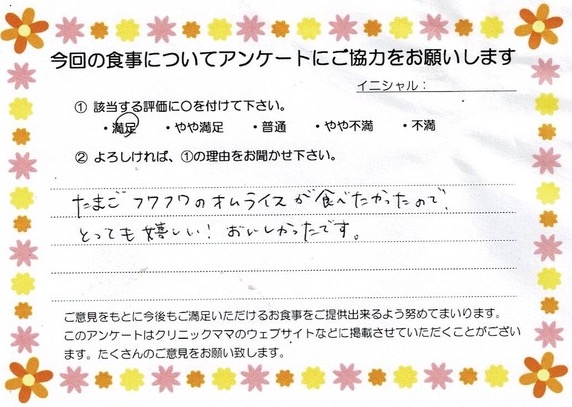 今回の食事についてアンケートにご協力をお願いします
イニシャル：
① 該当する評価に○を付けて下さい。
・満足 ・やや満足 ・普通 ・やや不満 ・不満
② よろしければ、①の理由をお聞かせ下さい。
たまごフワフワのオムライスが食べたかったので、
とっても嬉しい！おいしかったです。
ご意見をもとに今後もご満足いただけるお食事をご提供出来るよう努めてまいります。
このアンケートはクリニックママのウェブサイトなどに掲載させていただくことがござい
ます。たくさんのご意見をお願い致します。